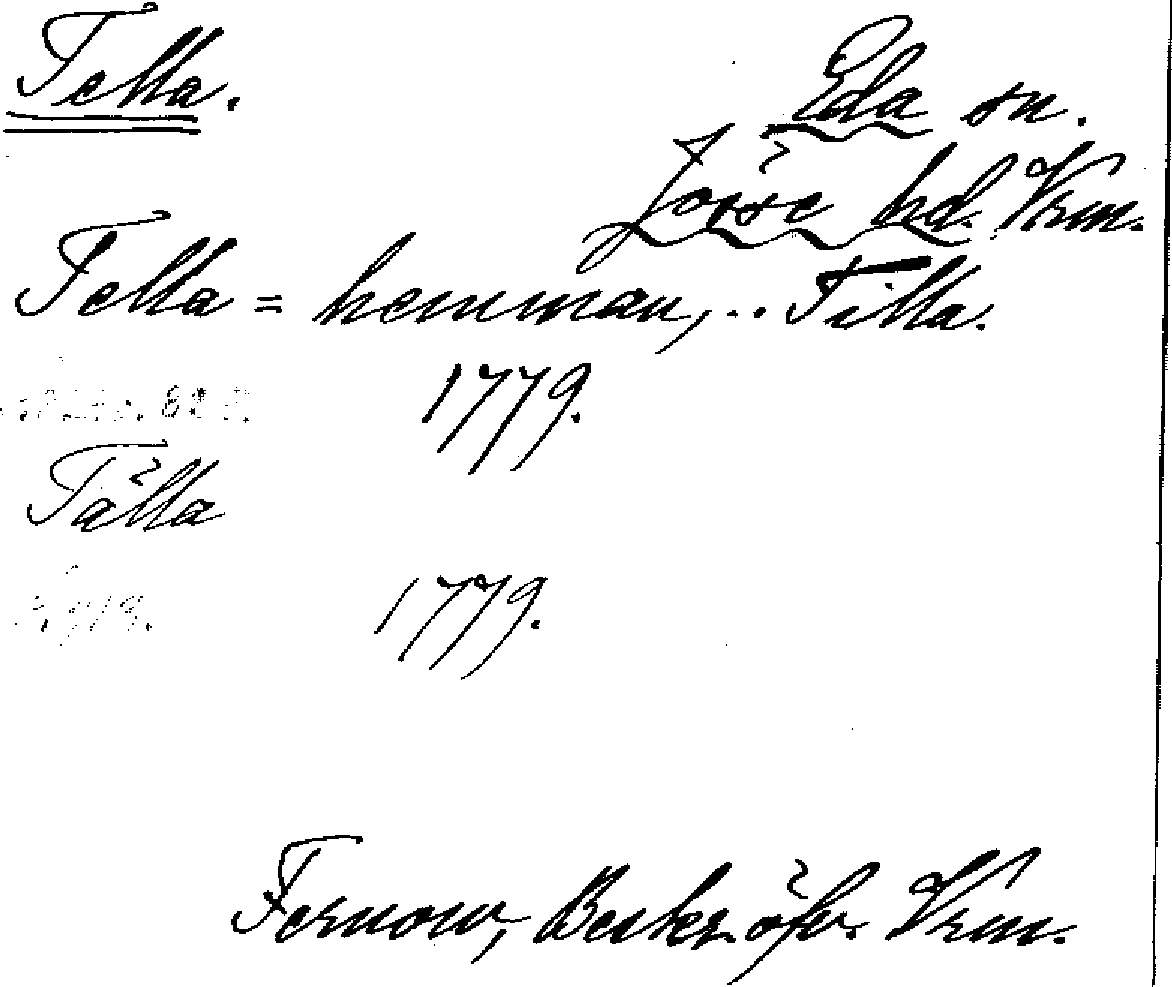 Tella.
Eda sn.
Jösse hd. Vrm.
Tella = hemman, .. Tilla.
1779.
Tälla
1779.
Fernow, Beskr. öfv. Vrm.